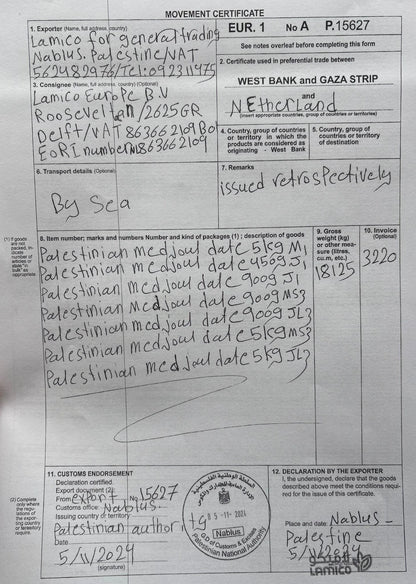 MOVEMENT CERTIFICATE
1. Exporter (Name, full address, country)
Lamico for general trading
Nablus. Palestine/VAT
562482976/Tel:092311475
EUR. 1 No A P.15627
See notes overleaf before completing this form
2. Certificate used in preferential trade between
WEST BANK and GAZA STRIP
and
NEtherland
(insert appropriate countries, group of countries or territories)
3. Consignee (Name, full address, country) (Optional)
Lamico Europe B.V
Rooseveltan/2625GR
Delft/VAT 863662109B01
EORI number 863662109
4. Country, group of countries
or territory in which the
products are considered as
originating - West Bank
5. Country, group of countries
or territory of destination
6. Transport details (Optional)
By Sea
7. Remarks
issued retrospectively
(1) If goods
are not
packed,
indicate
number of
articles or
state "in
bulk" as
appropriate
8. Item number; marks and numbers Number and kind of packages (1) ; description of goods
Palestinian medjoul date 5kg M1
Palestinian medjoul date 450g J1
Palestinian medjoul date 900g J1
Palestinian medjoul date 900g MS3
Palestinian medjoul date 900g JL3
Palestinian medjoul date 5kg MS3
Palestinian medjoul date 5kg JL3
9. Gross
weight (kg)
or other mea-
sure (litres,
cu.m, etc.)
18125
10. Invoice
(Optional)
3220
(2) Complete
only where
the regu-
lations of
the expor-
ting country
or territory
require.
11. CUSTOMS ENDORSEMENT
Declaration certified
Export document (2):
From export No 15627
Customs office: Nablus.
Issuing country or territory
Palestinian authority
Date
5/11/2024
(signature)
السلطة الوطنية الفلسطينية
05-11-2024
Nablus
G.D of Customs & Excises
Palestinian National Authority
12. DECLARATION BY THE EXPORTER
I, the undersigned, declare that the goods
described above meet the conditions requi-
red for the issue of this certificate.
Place and date Nablus -
Palestine
5/11/2024
LAMICO